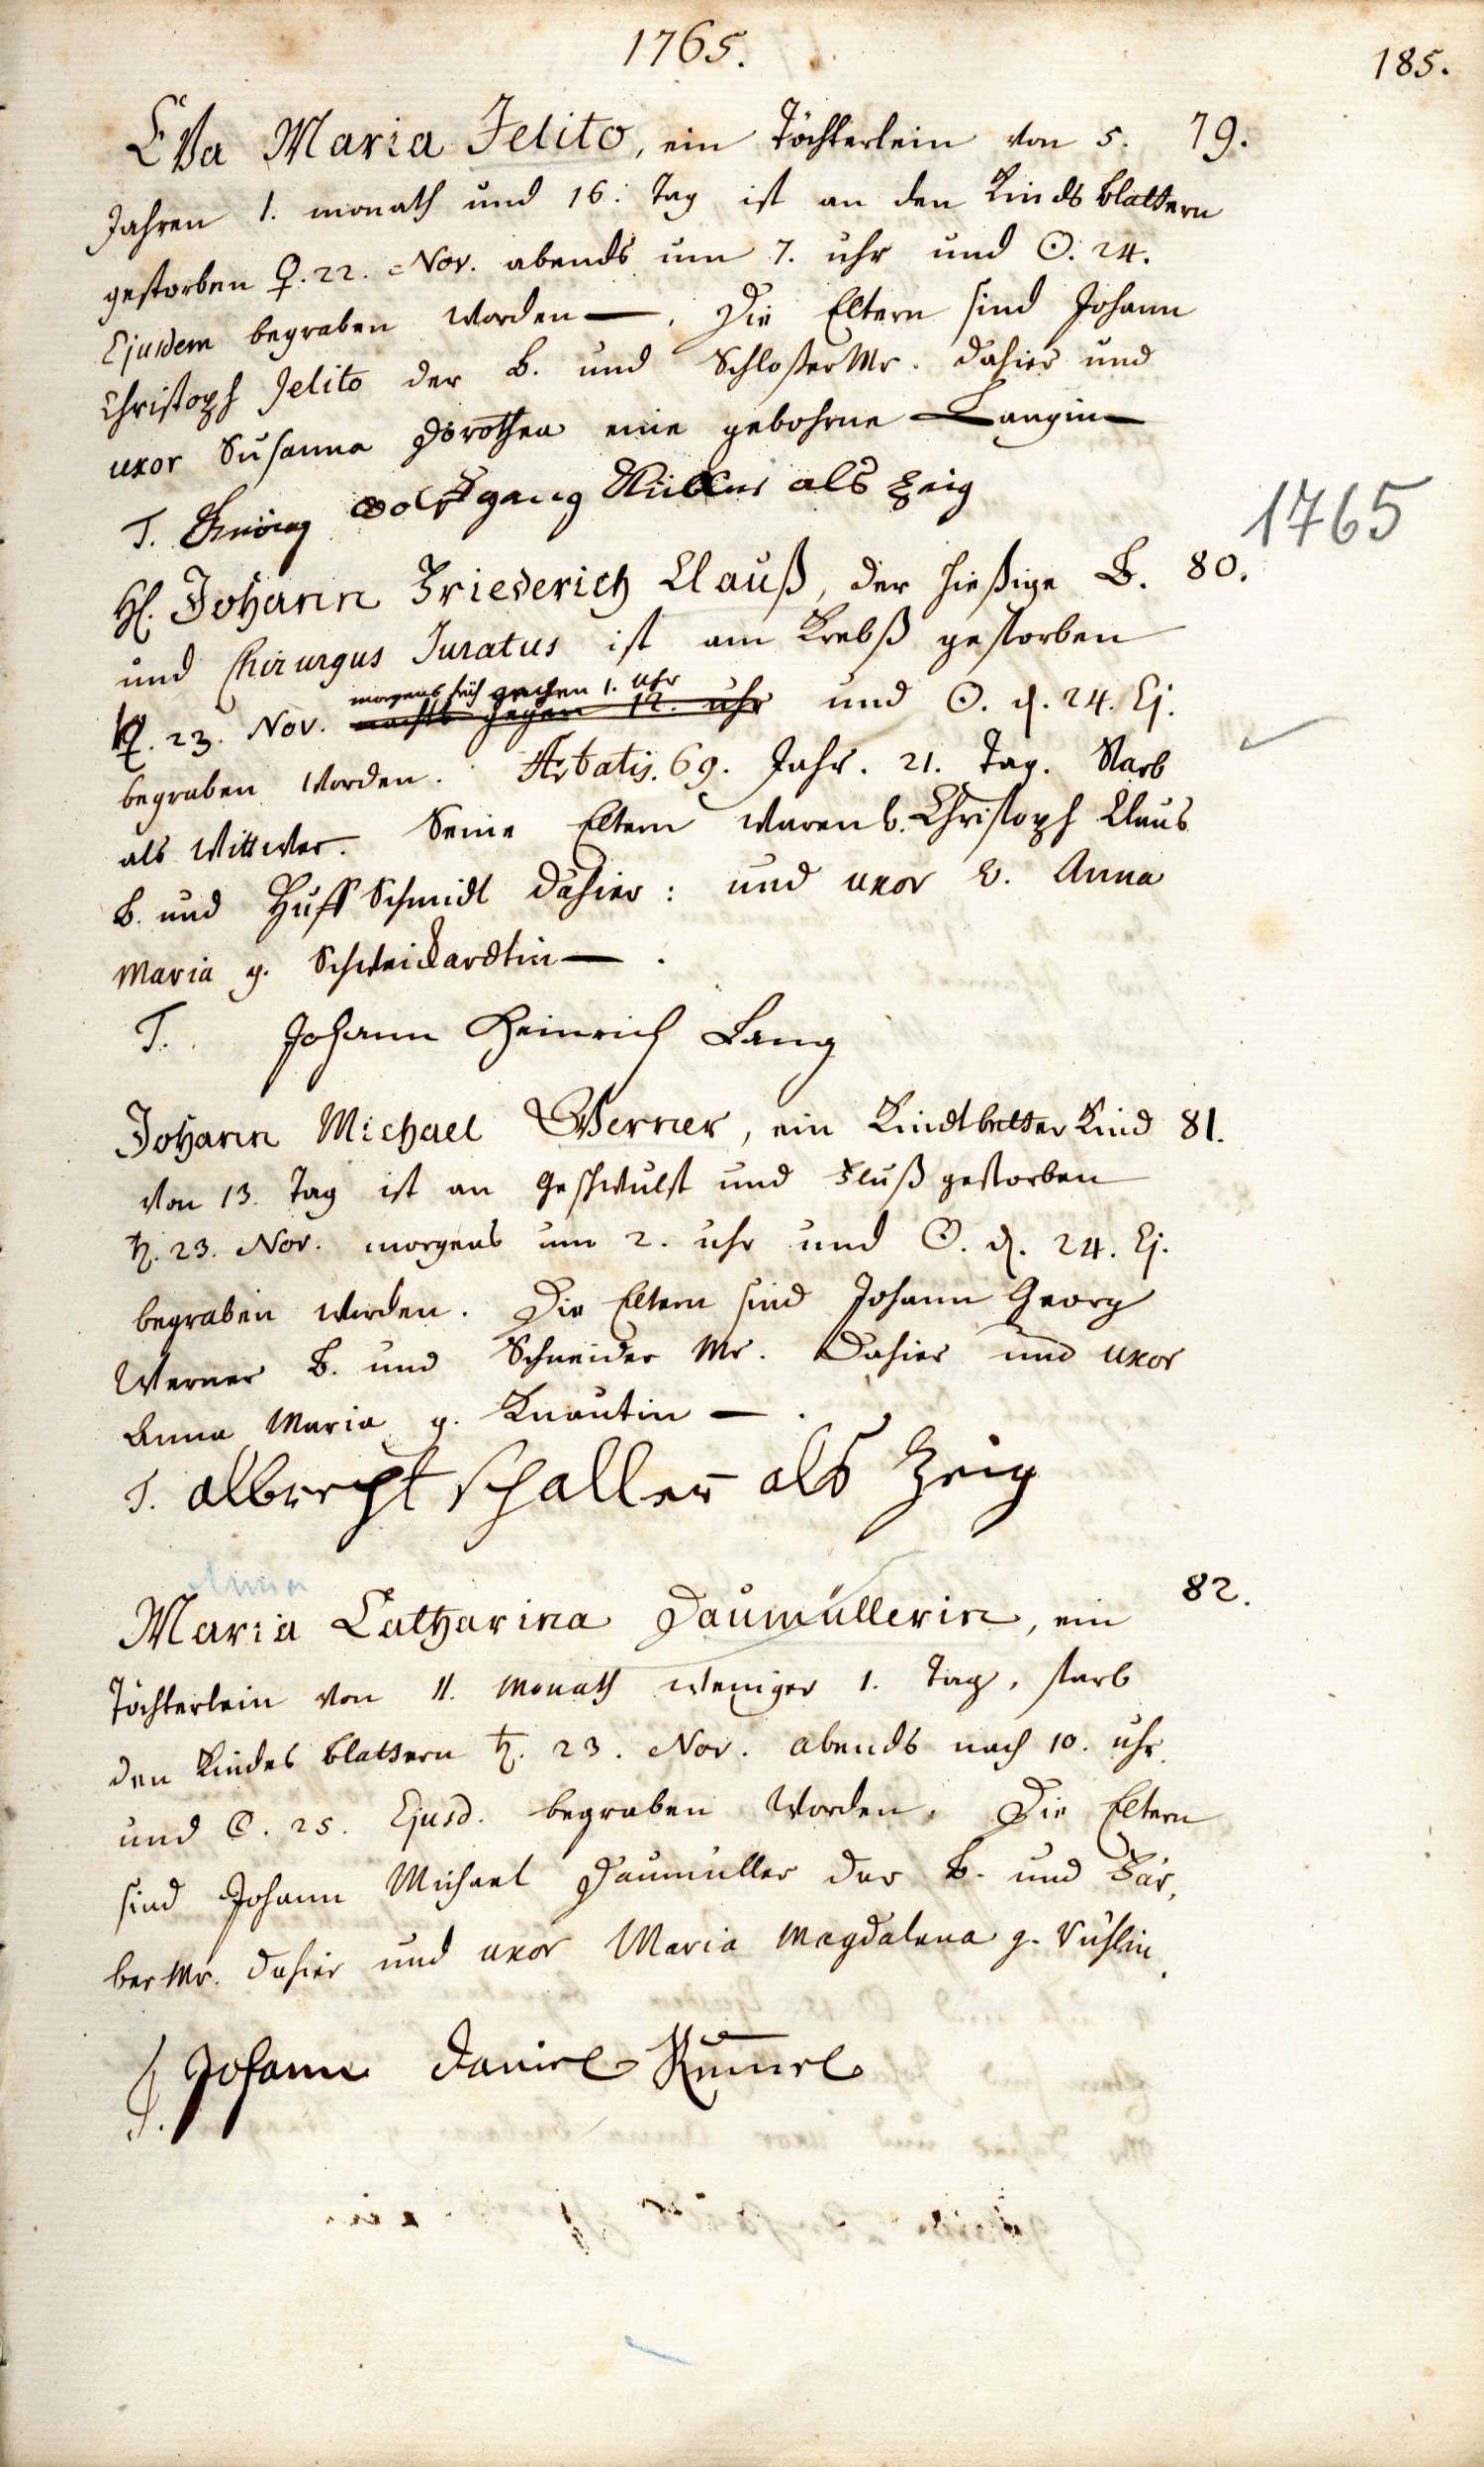 1765.
185.
Eva Maria Jelito, ein Töchterlein von 5. 79.
Jahren 1. monath und 16. Tag ist an den Kinds blattern
gestorben ♀. 22. Nov. abends um 7. uhr und ☉. 24.
Ejusdem begraben worden —. Die Eltern sind Johann
Christoph Jelito der B. und Schloßer Mr. dahier und
uxor Susanna Dorothea eine gebohrne Langin
T. Wolfgang als Zeig
1765
H. Johann Friederich Clauß, der hießige B. 80.
und Chirurgus Juratus ist am Krebß gestorben
morgens früh gegen 1. uhr
♄. 23. Nov. nachts gegen 12. uhr und ☉. d. 24. Ej.
begraben worden. Aetatis. 69. Jahr. 21. Tag. Starb
als Wittwer. Seine Eltern waren b. Christoph Claus
B. und Huff Schmidt dahier: und uxor b. Anna
Maria g. Schweickardtin — .
T. Johann Heinrich Lang
Johann Michael Werner, ein Kindtbetter Kind 81.
von 13. Tag ist an Geschwulst und Fluß gestorben
♄. 23. Nov. morgens um 2. uhr und ☉. d. 24. Ej.
begraben worden. Die Eltern sind Johann Georg
Werner B. und Schneider Mr. dahier und uxor
Anna Maria g. Knautin — .
T. albrecht schaller als Zeig
Anna
82.
Maria Catharina Daumüllerin, ein
Töchterlein von 11. Monath weniger 1. Tag, starb
den Kindes blattern ♄. 23. Nov. abends nach 10. uhr
und ☾. 25. Ejusd. begraben worden. Die Eltern
sind Johann Michael Daumüller der B. und Fär,
ber Mr. dahier und uxor Maria Magdalena g.
T. Johann Daniel